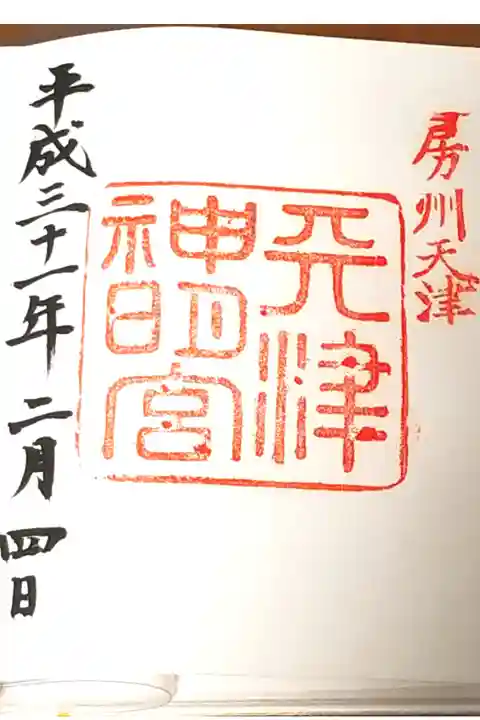 房州天津
天津
神明宮
平成三十一年二月四日